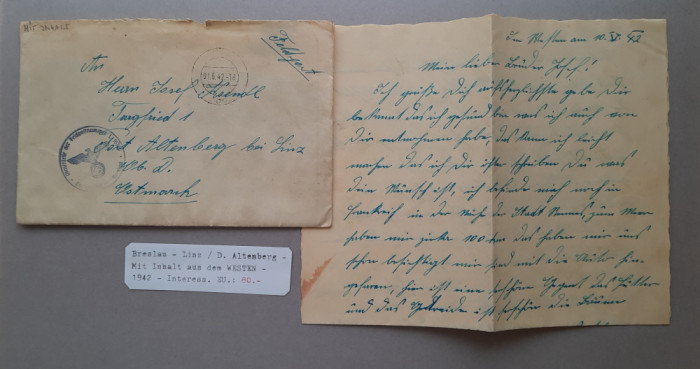 MIT INHALT
Feldpost
31.8.42
An
Herrn Josef
Post Altenberg bei Linz
Ob. D.
Ostmark
Breslau - Linz / D. Altenberg -
Mit Inhalt aus dem WESTEN -
1942 - Interess. ZU.: 80.-
Im Westen am 10.V.42
Mein lieber Bruder Josef!
Ich grüße Dich aufs herzlichste gebe Dir
bekannt das ich gesund bin was ich auch von
Dir entnommen habe, das kann ich leicht
machen das ich Dir öfter schreiben Du was
dein Wunsch ist, ich befinde mich noch in
Frankreich in der Nähe der Stadt Rennes, zum Meer
haben wir zirka 100 km das haben wir uns
schon besichtigt wir sind mit die hin
gefahren, hier ist eine schöne Gegend das Futter
und das Getreide ist schön die Bäume